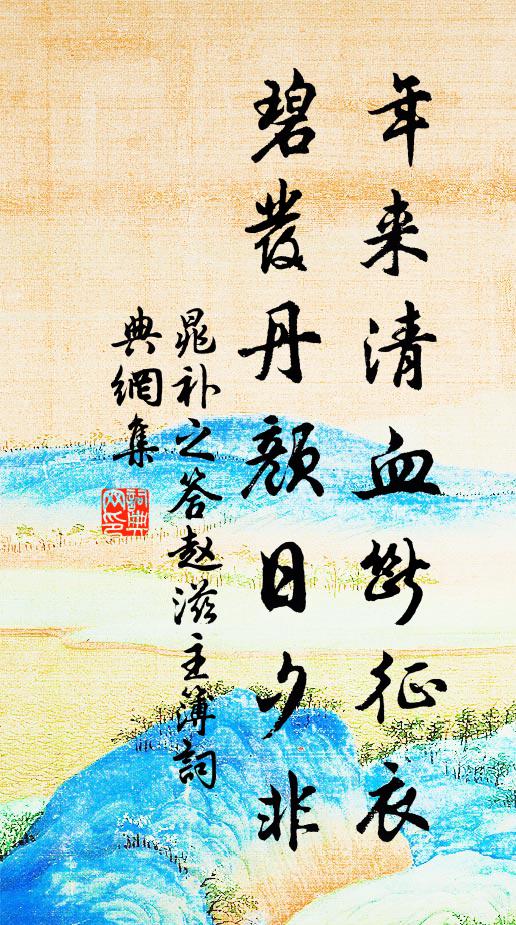 年来清血断征衣
碧发丹颜日夕非
晁补之答赵滋主簿詞
典網集
詞典網印